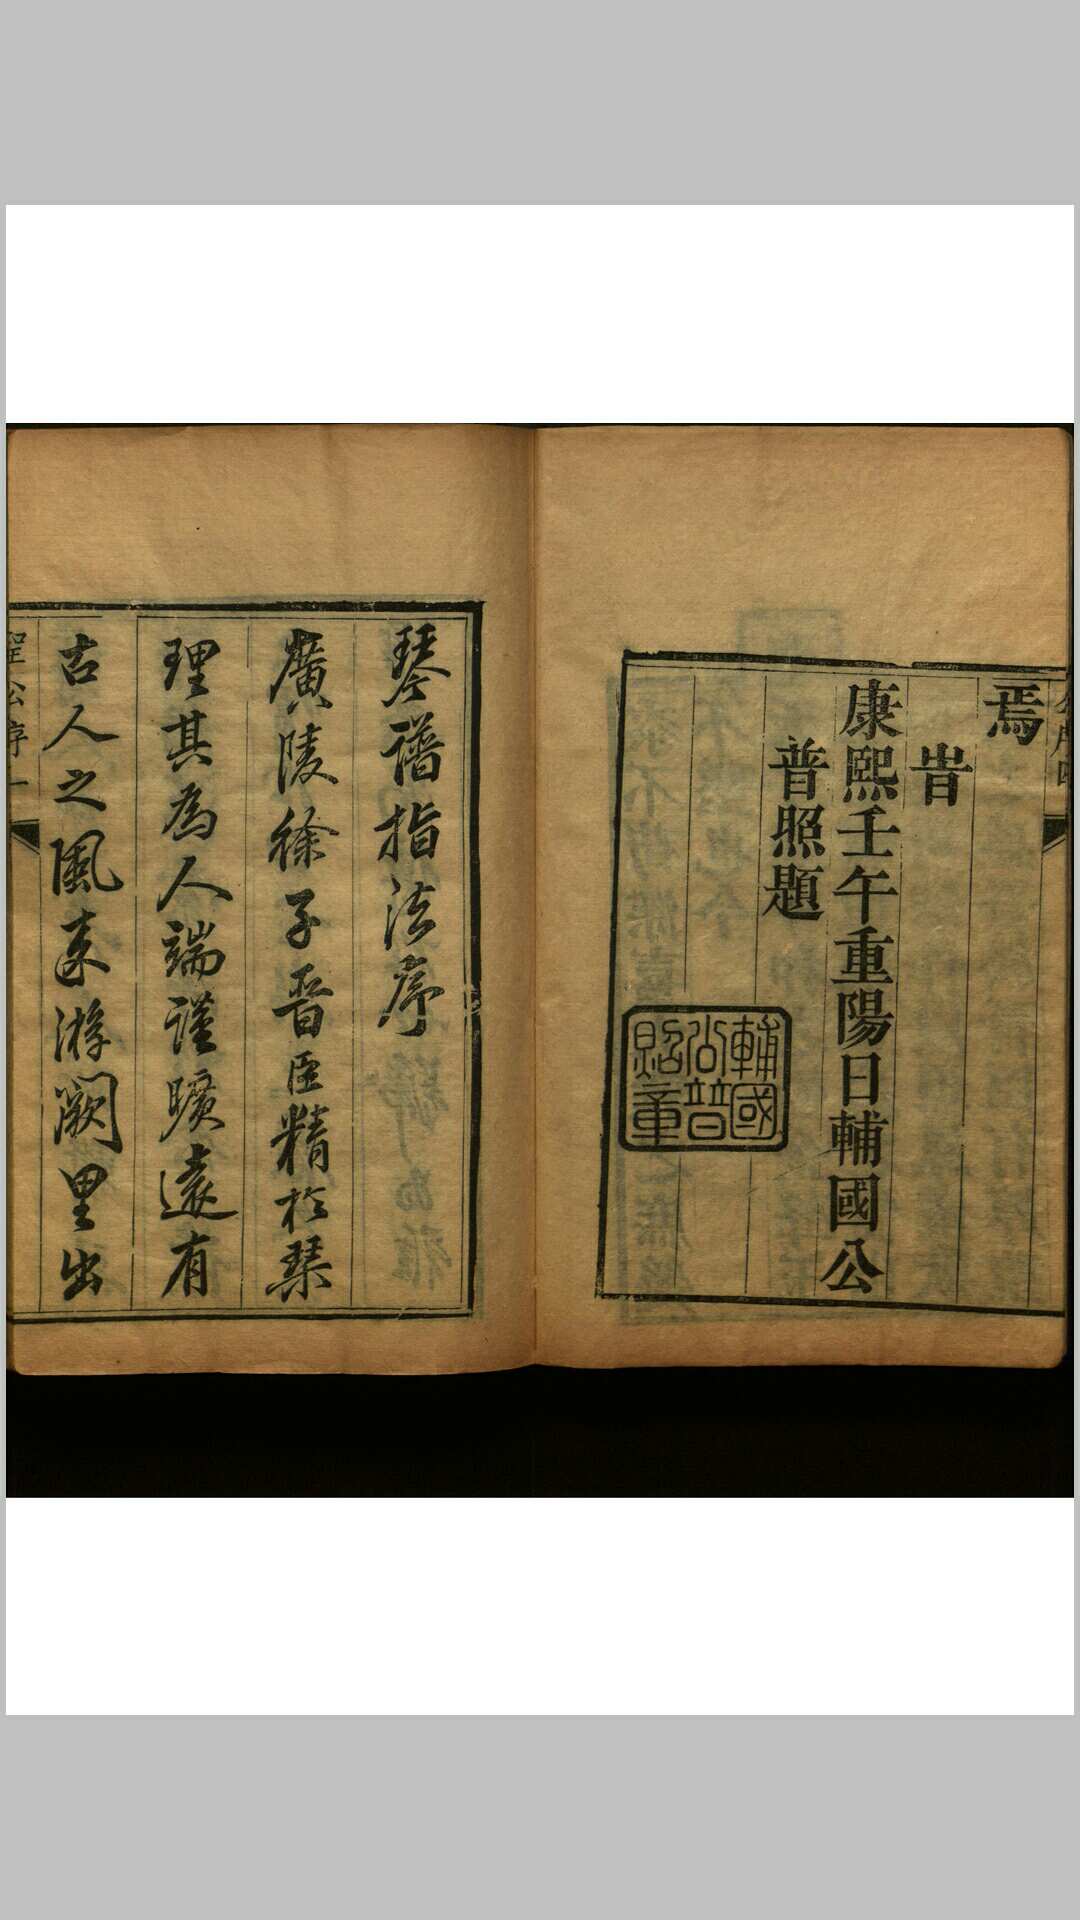 焉
旹
康熙壬午重陽日輔國公
普照題
輔國
公普
照章
琴譜指法序
廣陵徐子晋臣精於琴
理其為人端謹曠遠有
古人之風来游闕里出
聖公序一